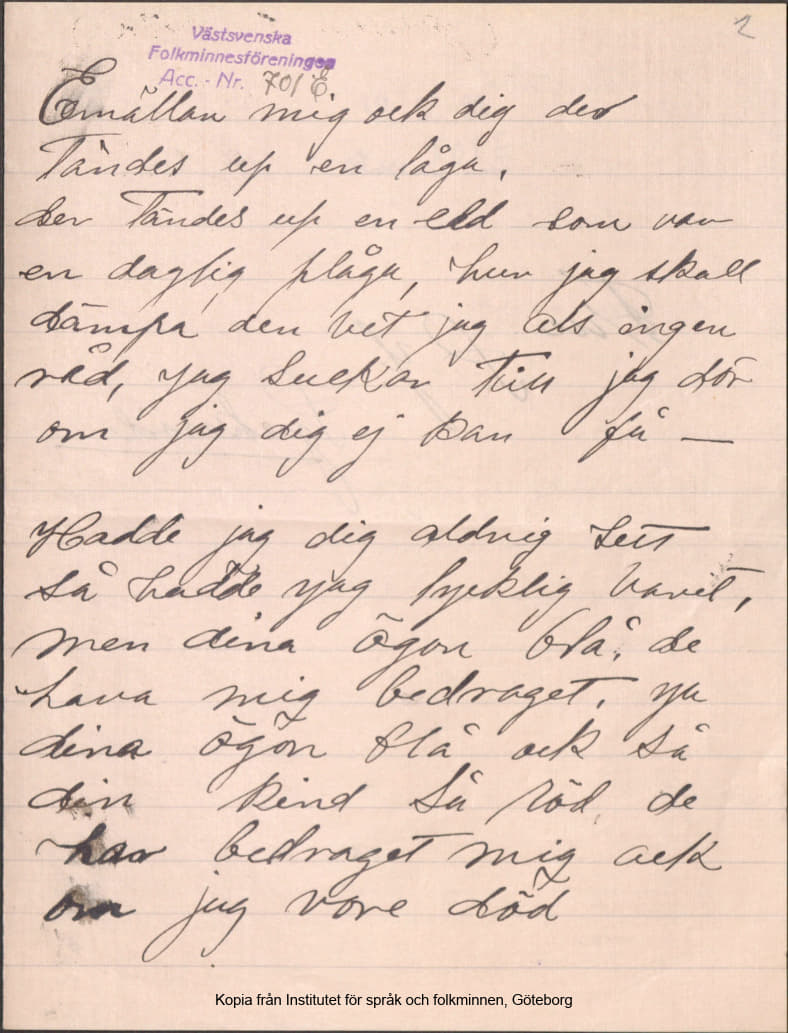 2
Västsvenska
Folkminnesföreningen
Acc. - Nr. 701 E.
Emällan mig ock dig der
Tändes up en låga.
der Tändes up en eld som var
en daglig plåga, hur jag skall
dämpa den vet jag als ingen
råd, jag suckar till jag dör
om jag dig ej kan få —
Hadde jag dig aldrig sett
så hadde jag lycklig varit,
men dina ögon blå, de
hava mig bedraget. ja
dina ögon blå ock så
din kind så röd, de
har bedraget mig ack
om jag vore död
Kopia från Institutet för språk och folkminnen, Göteborg